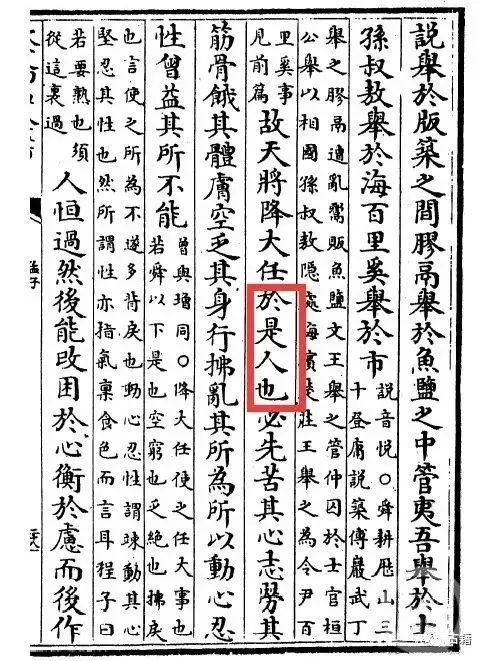 説舉於版築之間膠鬲舉於魚鹽之中管夷吾舉於士
孫叔敖舉於海百里奚舉於市
説音悅○舜耕歷山三
十登庸説築傅巖武丁
舉之膠鬲遭亂鬻販魚鹽文王舉之管仲囚於士官桓
公舉以相國孫叔敖隱處海濱楚莊王舉之為令尹百
里奚事
見前篇
故天將降大任於是人也必先苦其心志勞其
筋骨餓其體膚空乏其身行拂亂其所為所以動心忍
性曾益其所不能
曾與增同○降大任使之任大事也
若舜以下是也空窮也乏絶也拂戾
也言使之所為不遂多背戾也動心忍性謂竦動其心
堅忍其性也然所謂性亦指氣稟食色而言耳程子曰
若要熟也須
從這裏過
人恒過然後能改困於心衡於慮而後作
孟子
古籍